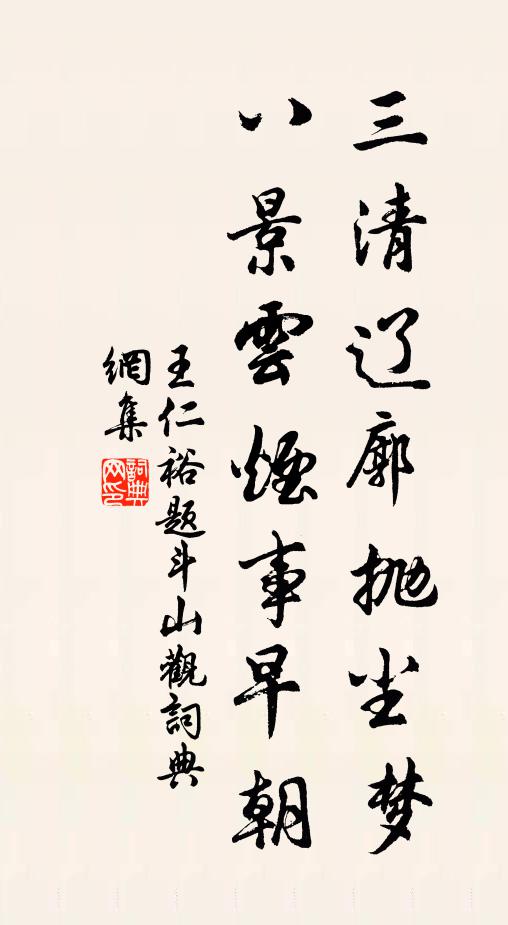 三清辽廓抛尘梦
八景雲煙事早朝
王仁裕题斗山觀詞典
網集
詞典网印